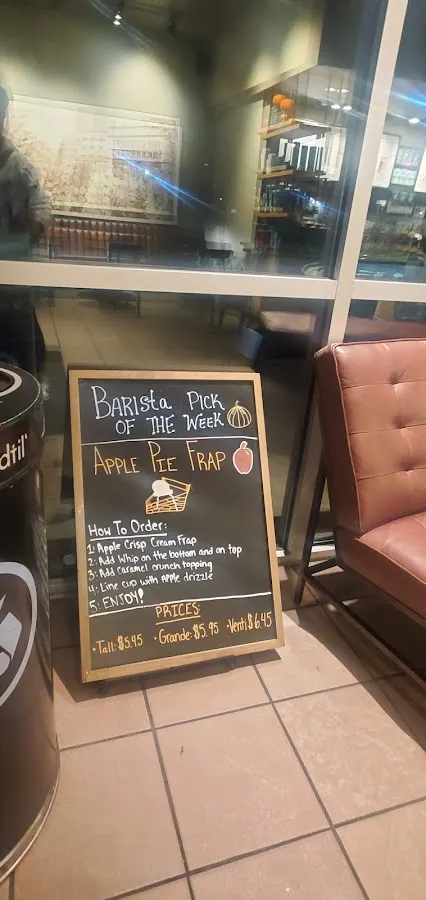 BARISTA PICK
OF THE WEEK
APPLE PIE FRAP
How To Order:
1: Apple Crisp Cream Frap
2: Add Whip on the bottom and on top
3: Add Caramel crunch topping
4: Line cup with Apple drizzle
5: ENJOY!
PRICES:
•Tall: $5.45 •Grande: $5.95 •Venti $6.45
dtil'